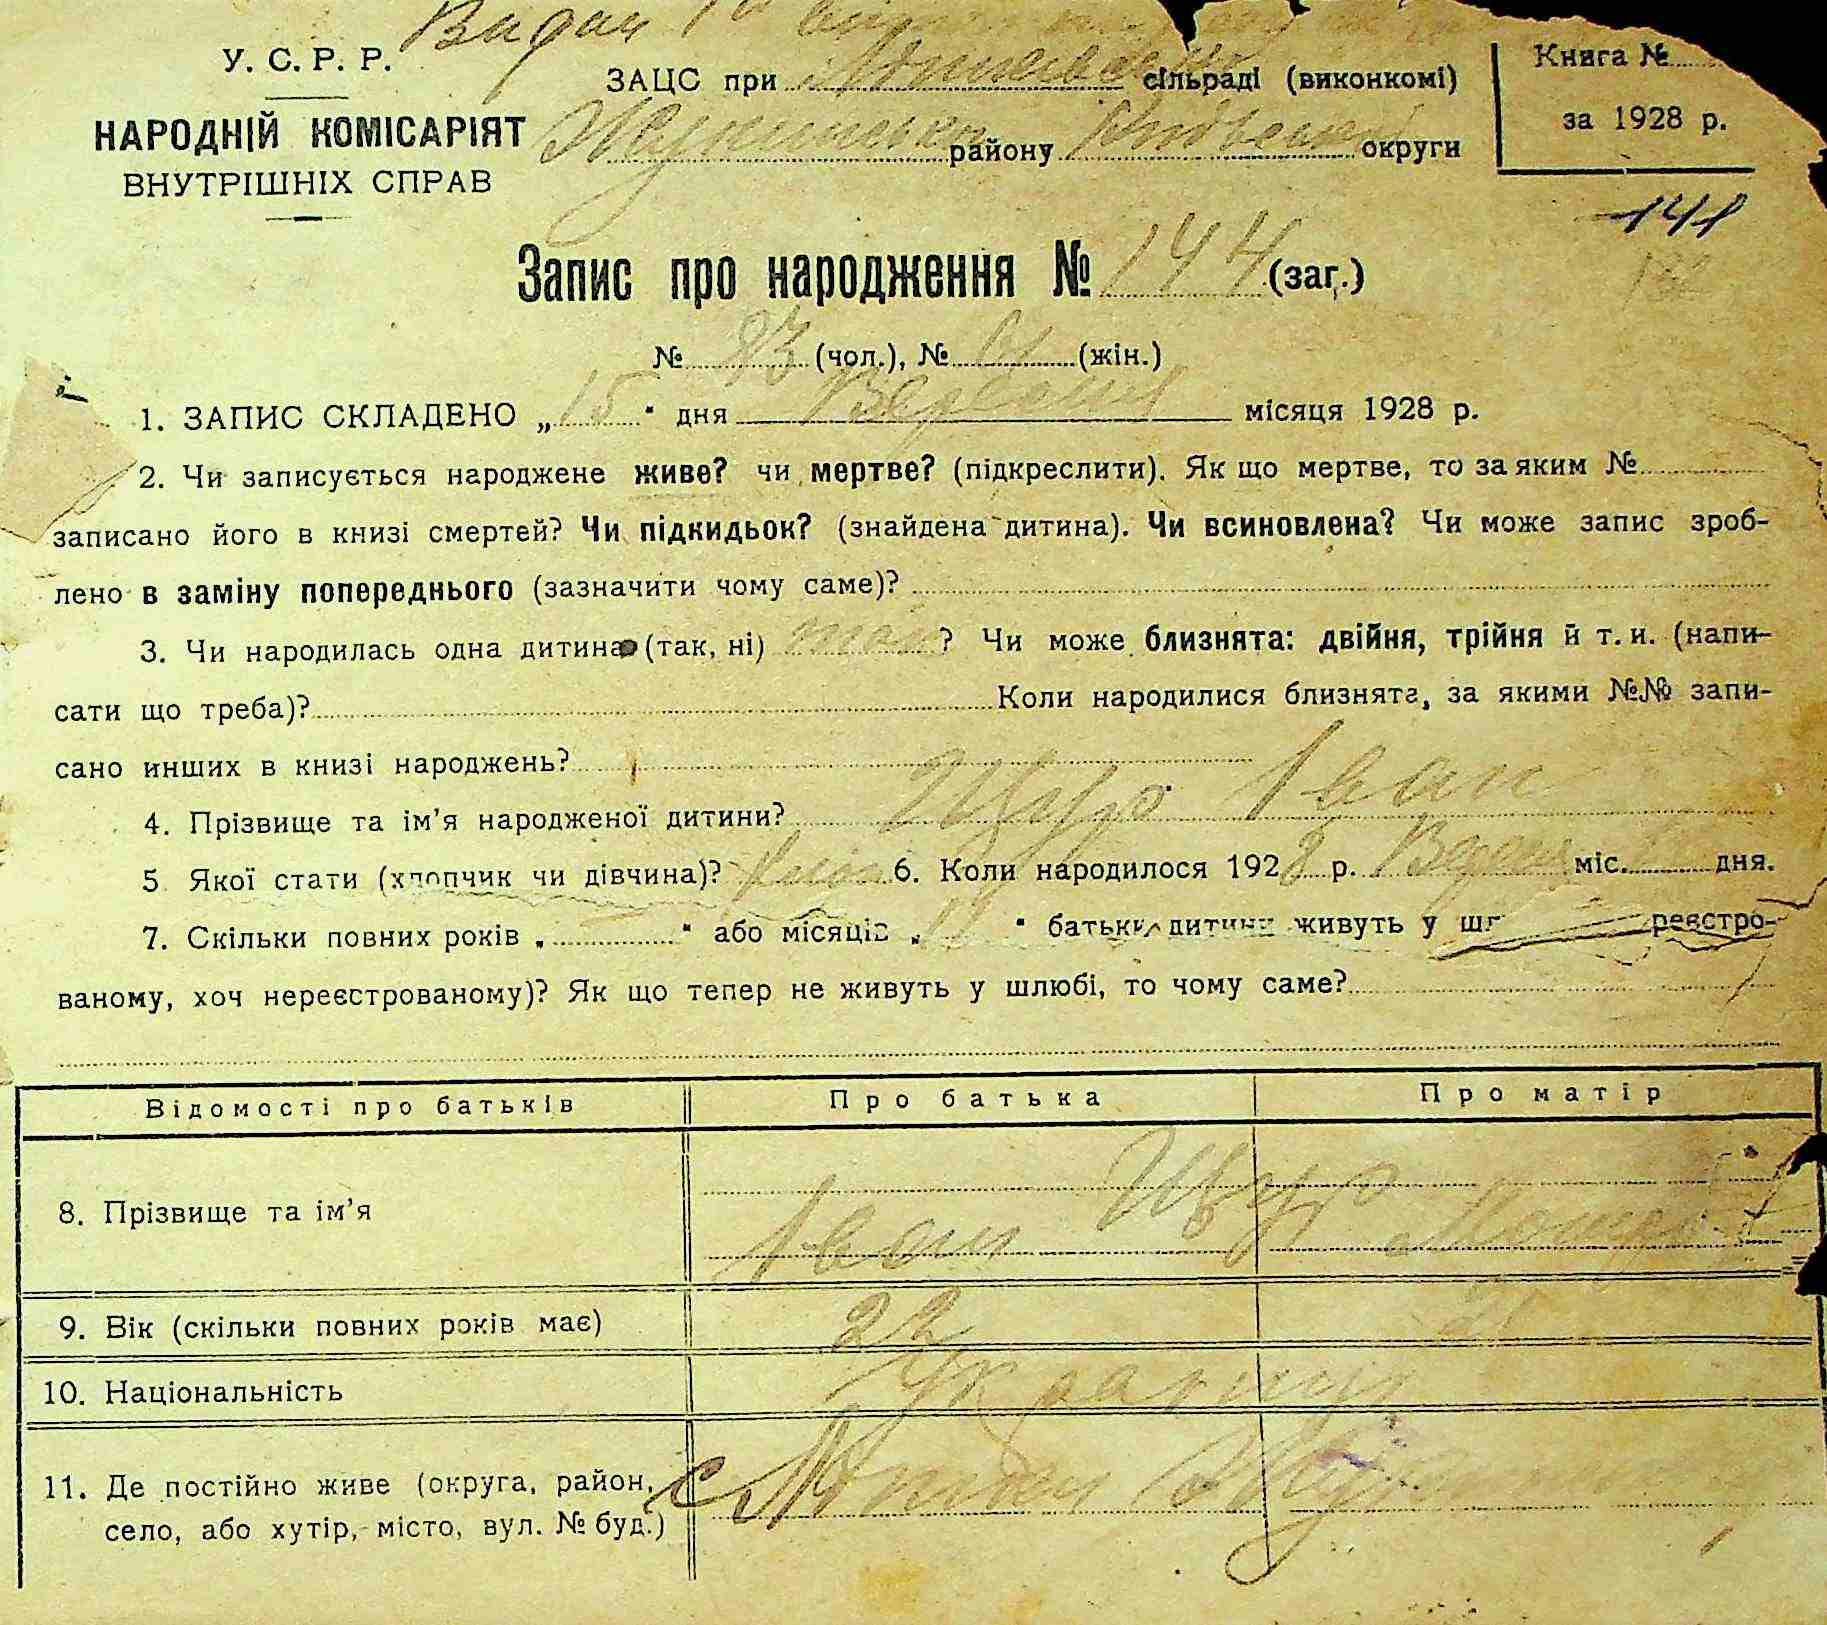 У. С. Р. Р.
НАРОДНІЙ КОМІСАРІЯТ
ВНУТРІШНІХ СПРАВ
ЗАЦС при сільраді (виконкомі)
району округи
Книга №
за 1928 р.
141
Запис про народження № 144 (заг.)
№ 83 (чол.), № (жін.)
1. ЗАПИС СКЛАДЕНО „15" дня Вересня місяця 1928 р.
2. Чи записується народжене живе? чи мертве? (підкреслити). Як що мертве, то за яким №
записано його в книзі смертей? Чи підкидьок? (знайдена дитина). Чи всиновлена? Чи може запис зроб-
лено в заміну попереднього (зазначити чому саме)?
3. Чи народилась одна дитина (так, ні) так? Чи може близнята: двійня, трійня й т. и. (напи-
сати що треба)? Коли народилися близнята, за якими №№ запи-
сано инших в книзі народжень?
4. Прізвище та ім'я народженої дитини? Щур Іван
5. Якої стати (хлопчик чи дівчина)? 6. Коли народилося 1928 р. Верес міс. дня.
7. Скільки повних років „ " або місяців „ " батьки дитини живуть у реєстро-
ваному, хоч нереєстрованому)? Як що тепер не живуть у шлюбі, то чому саме?
Відомості про батьків Про батька Про матір
8. Прізвище та ім'я Щур
Іван
9. Вік (скільки повних років має) 22
10. Національність Українці
11. Де постійно живе (округа, район, с
село, або хутір, місто, вул. № буд.)